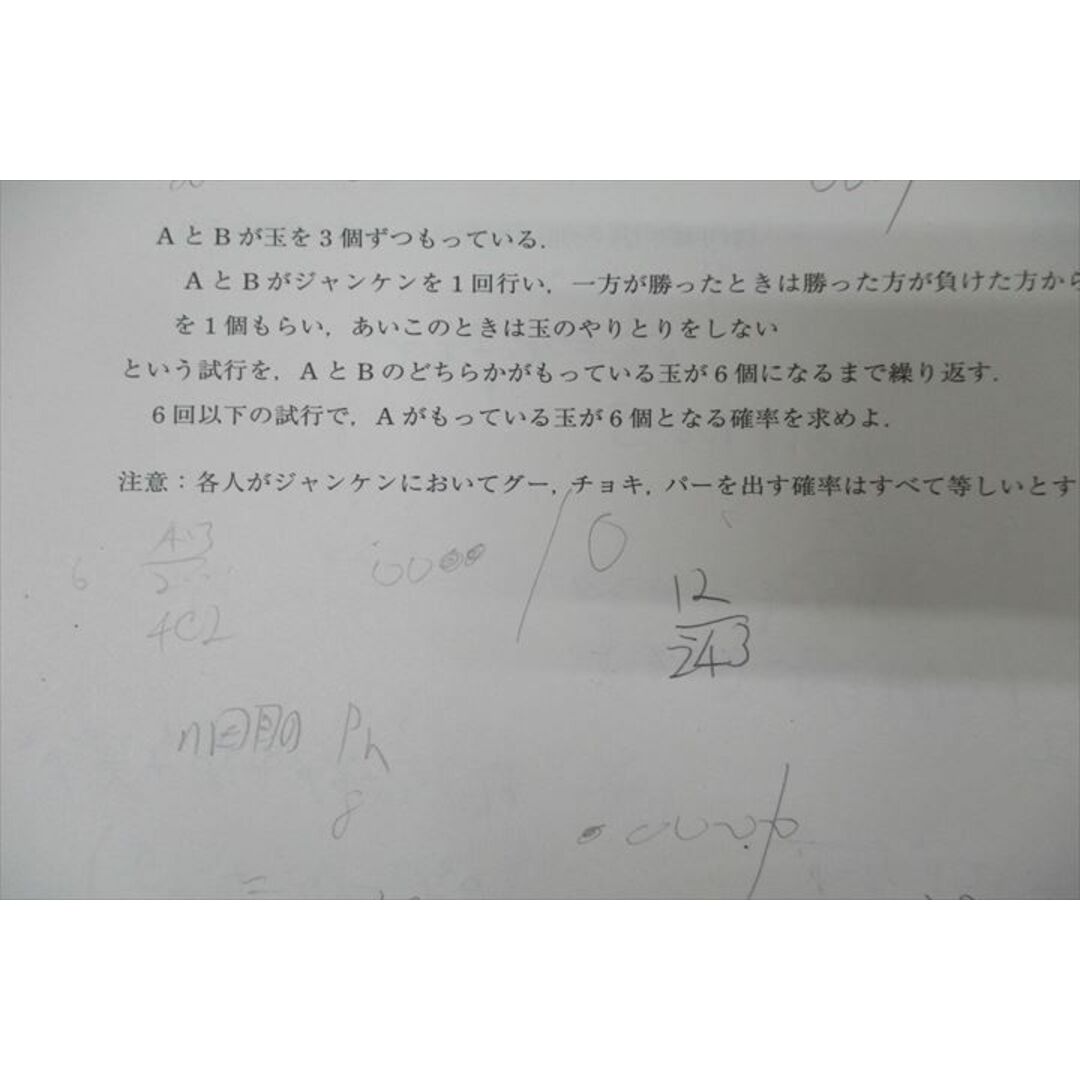 AとBが玉を3個ずつもっている.
AとBがジャンケンを1回行い, 一方が勝ったときは勝った方が負けた方から
を1個もらい, あいこのときは玉のやりとりをしない
という試行を, AとBのどちらかがもっている玉が6個になるまで繰り返す.
6回以下の試行で, Aがもっている玉が6個となる確率を求めよ.
注意：各人がジャンケンにおいてグー, チョキ, パーを出す確率はすべて等しいとす
6
4・3
2
4C2
12
243
n回目の Pn
8